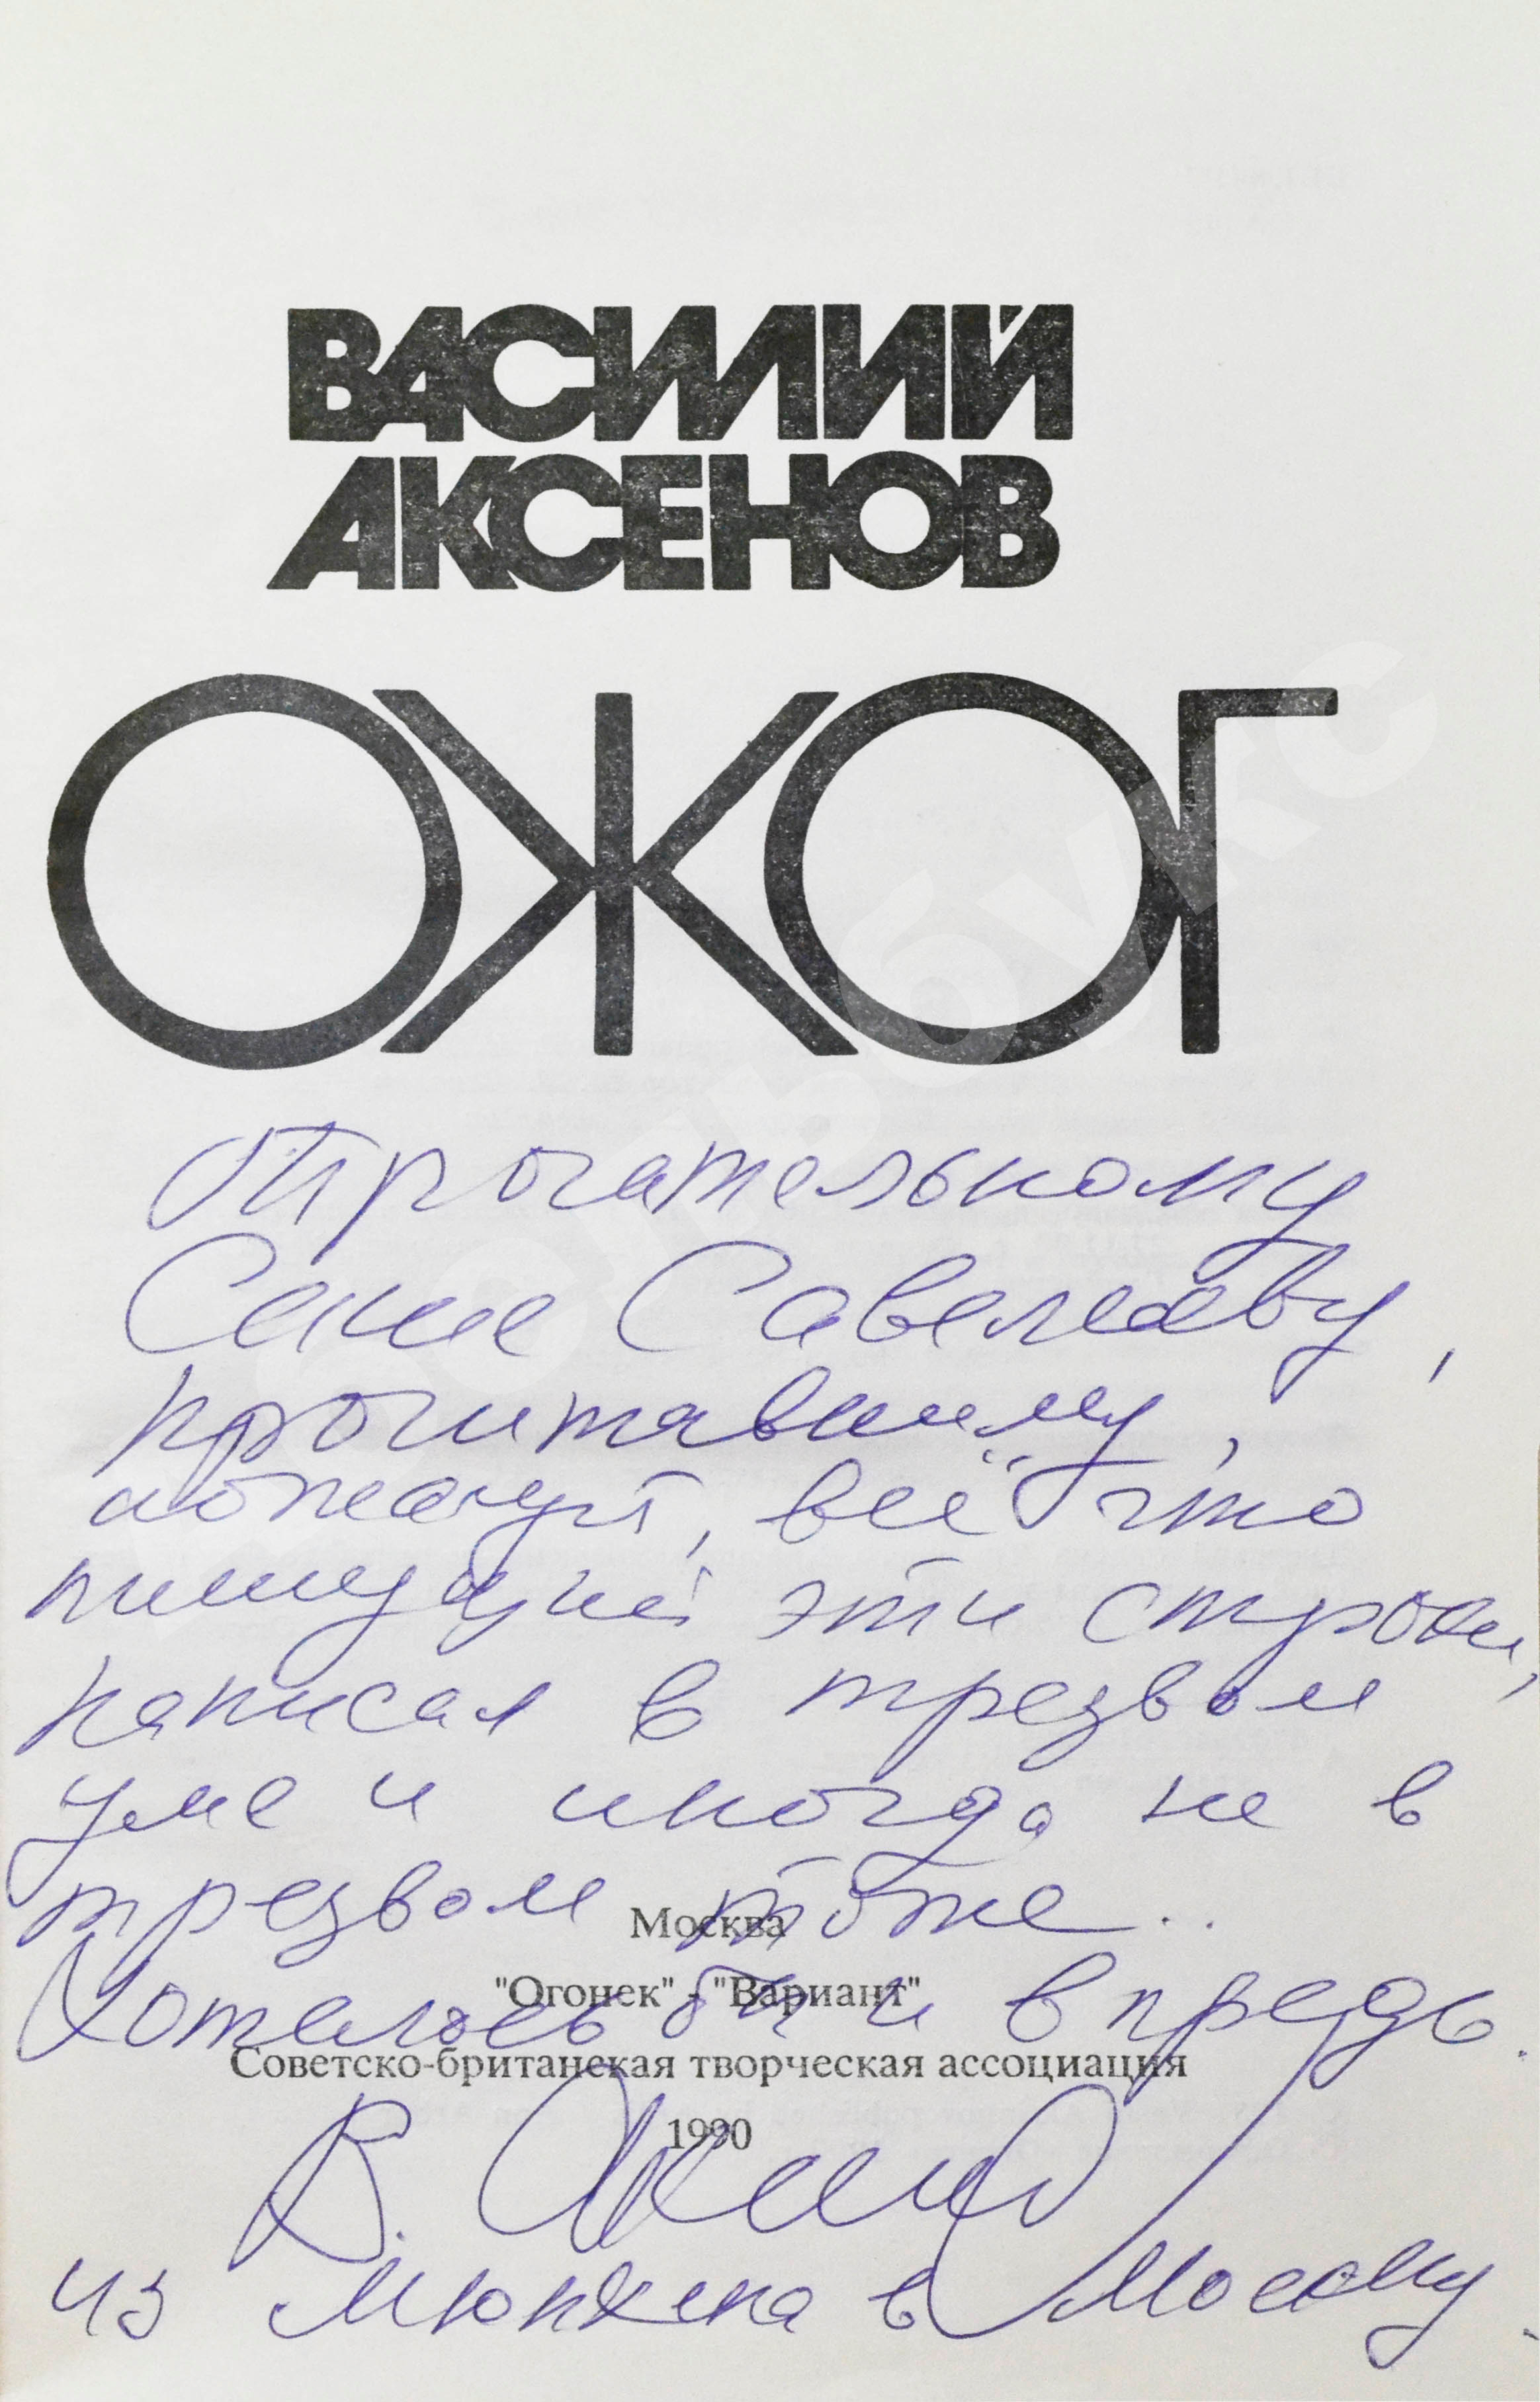 ВАСИЛИЙ
АКСЕНОВ
ОЖОГ
Трогательному
Сене Савельеву,
прочитавшему,
пожалуй, всё что
пишущий эти строки,
написал в трезвом
уме и иногда не в
трезвом тоже..
Москва
"Огонек" - "Вариант"
Хотелось бы и впредь.
Советско-британская творческая ассоциация
1990
В. Аксенов
из Мюнхена в Москву.